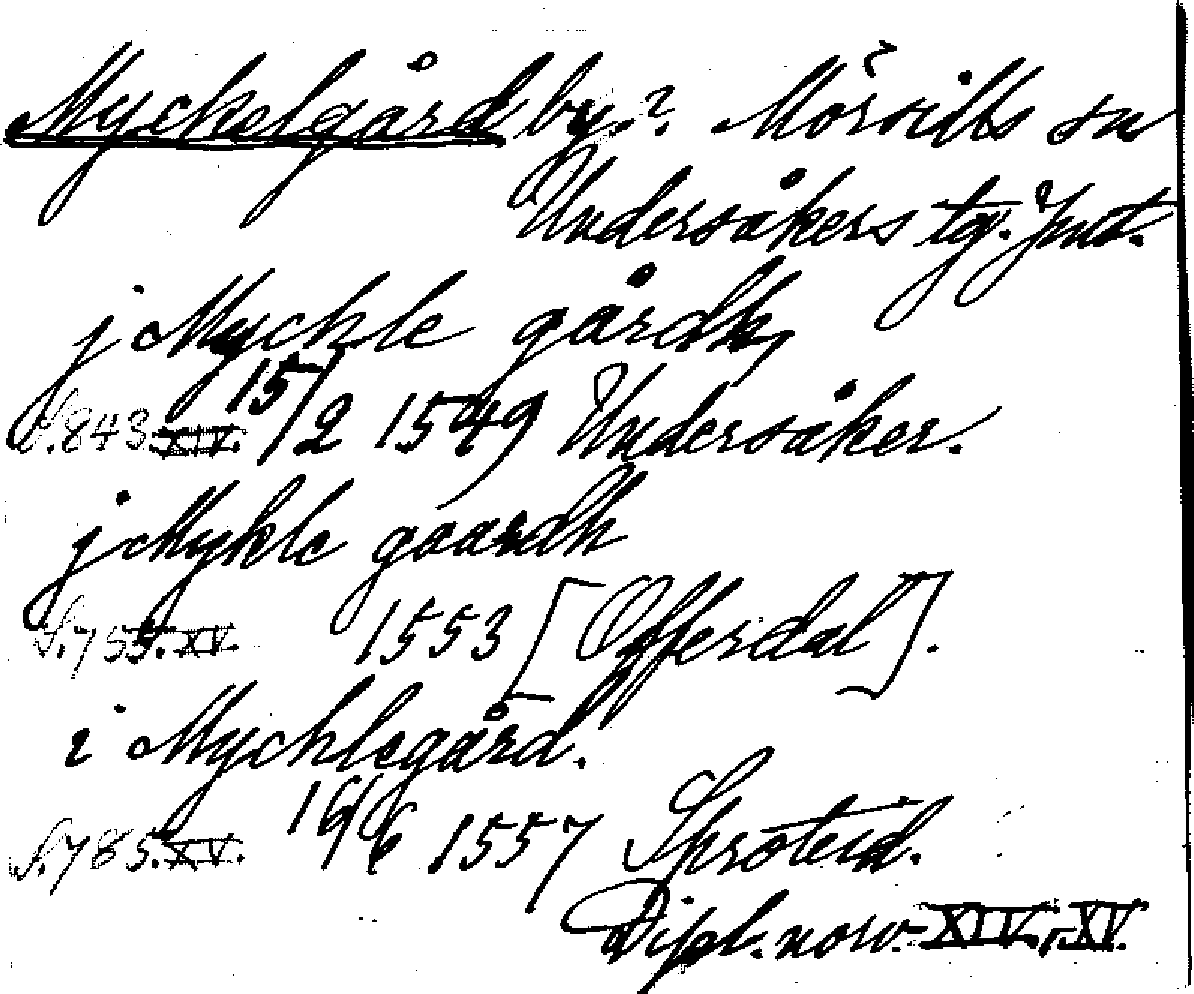 Myckelgård by? Mörsills sn
Undersåkers tg. Jmt.
j Myckle gårdh,
S. 843. XIV. 15/2 1549 Undersåker.
j Mykle gaardh
S. 755. XV. 1553 [Offerdal].
i Mychlegård.
S. 785. XV. 16/6 1557 Sproteid.
Dipl. norv. XIV, XV.